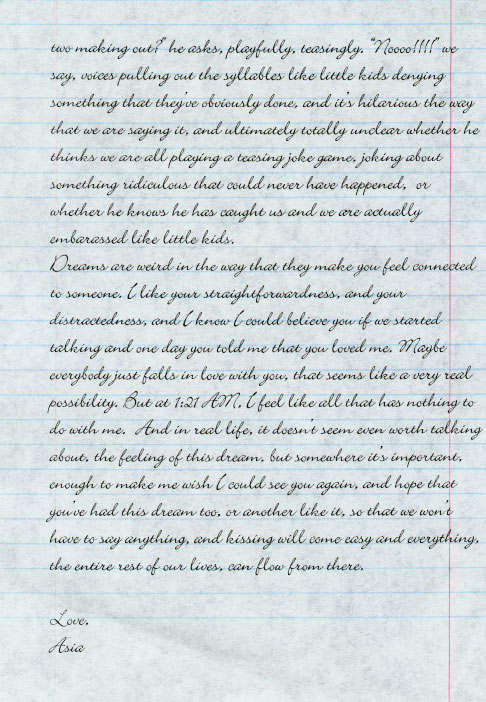 two making out?" he asks, playfully, teasingly. "Noooo!!!!" we
say, voices pulling out the syllables like little kids denying
something that they've obviously done, and it's hilarious the way
that we are saying it, and ultimately totally unclear whether he
thinks we are all playing a teasing joke game, joking about
something ridiculous that could never have happened, or
whether he knows he has caught us and we are actually
embarassed like little kids.
Dreams are weird in the way that they make you feel connected
to someone. I like your straightforwardness, and your
distractedness, and I know I could believe you if we started
talking and one day you told me that you loved me. Maybe
everybody just falls in love with you, that seems like a very real
possibility. But at 1:21 AM, I feel like all that has nothing to
do with me. And in real life, it doesn't seem even worth talking
about, the feeling of this dream, but somewhere it's important,
enough to make me wish I could see you again, and hope that
you've had this dream too, or another like it, so that we won't
have to say anything, and kissing will come easy and everything,
the entire rest of our lives, can flow from there.
Love,
Asia